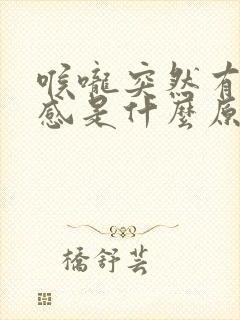 喉嚨突然有
感是什麼原
橋舒芸